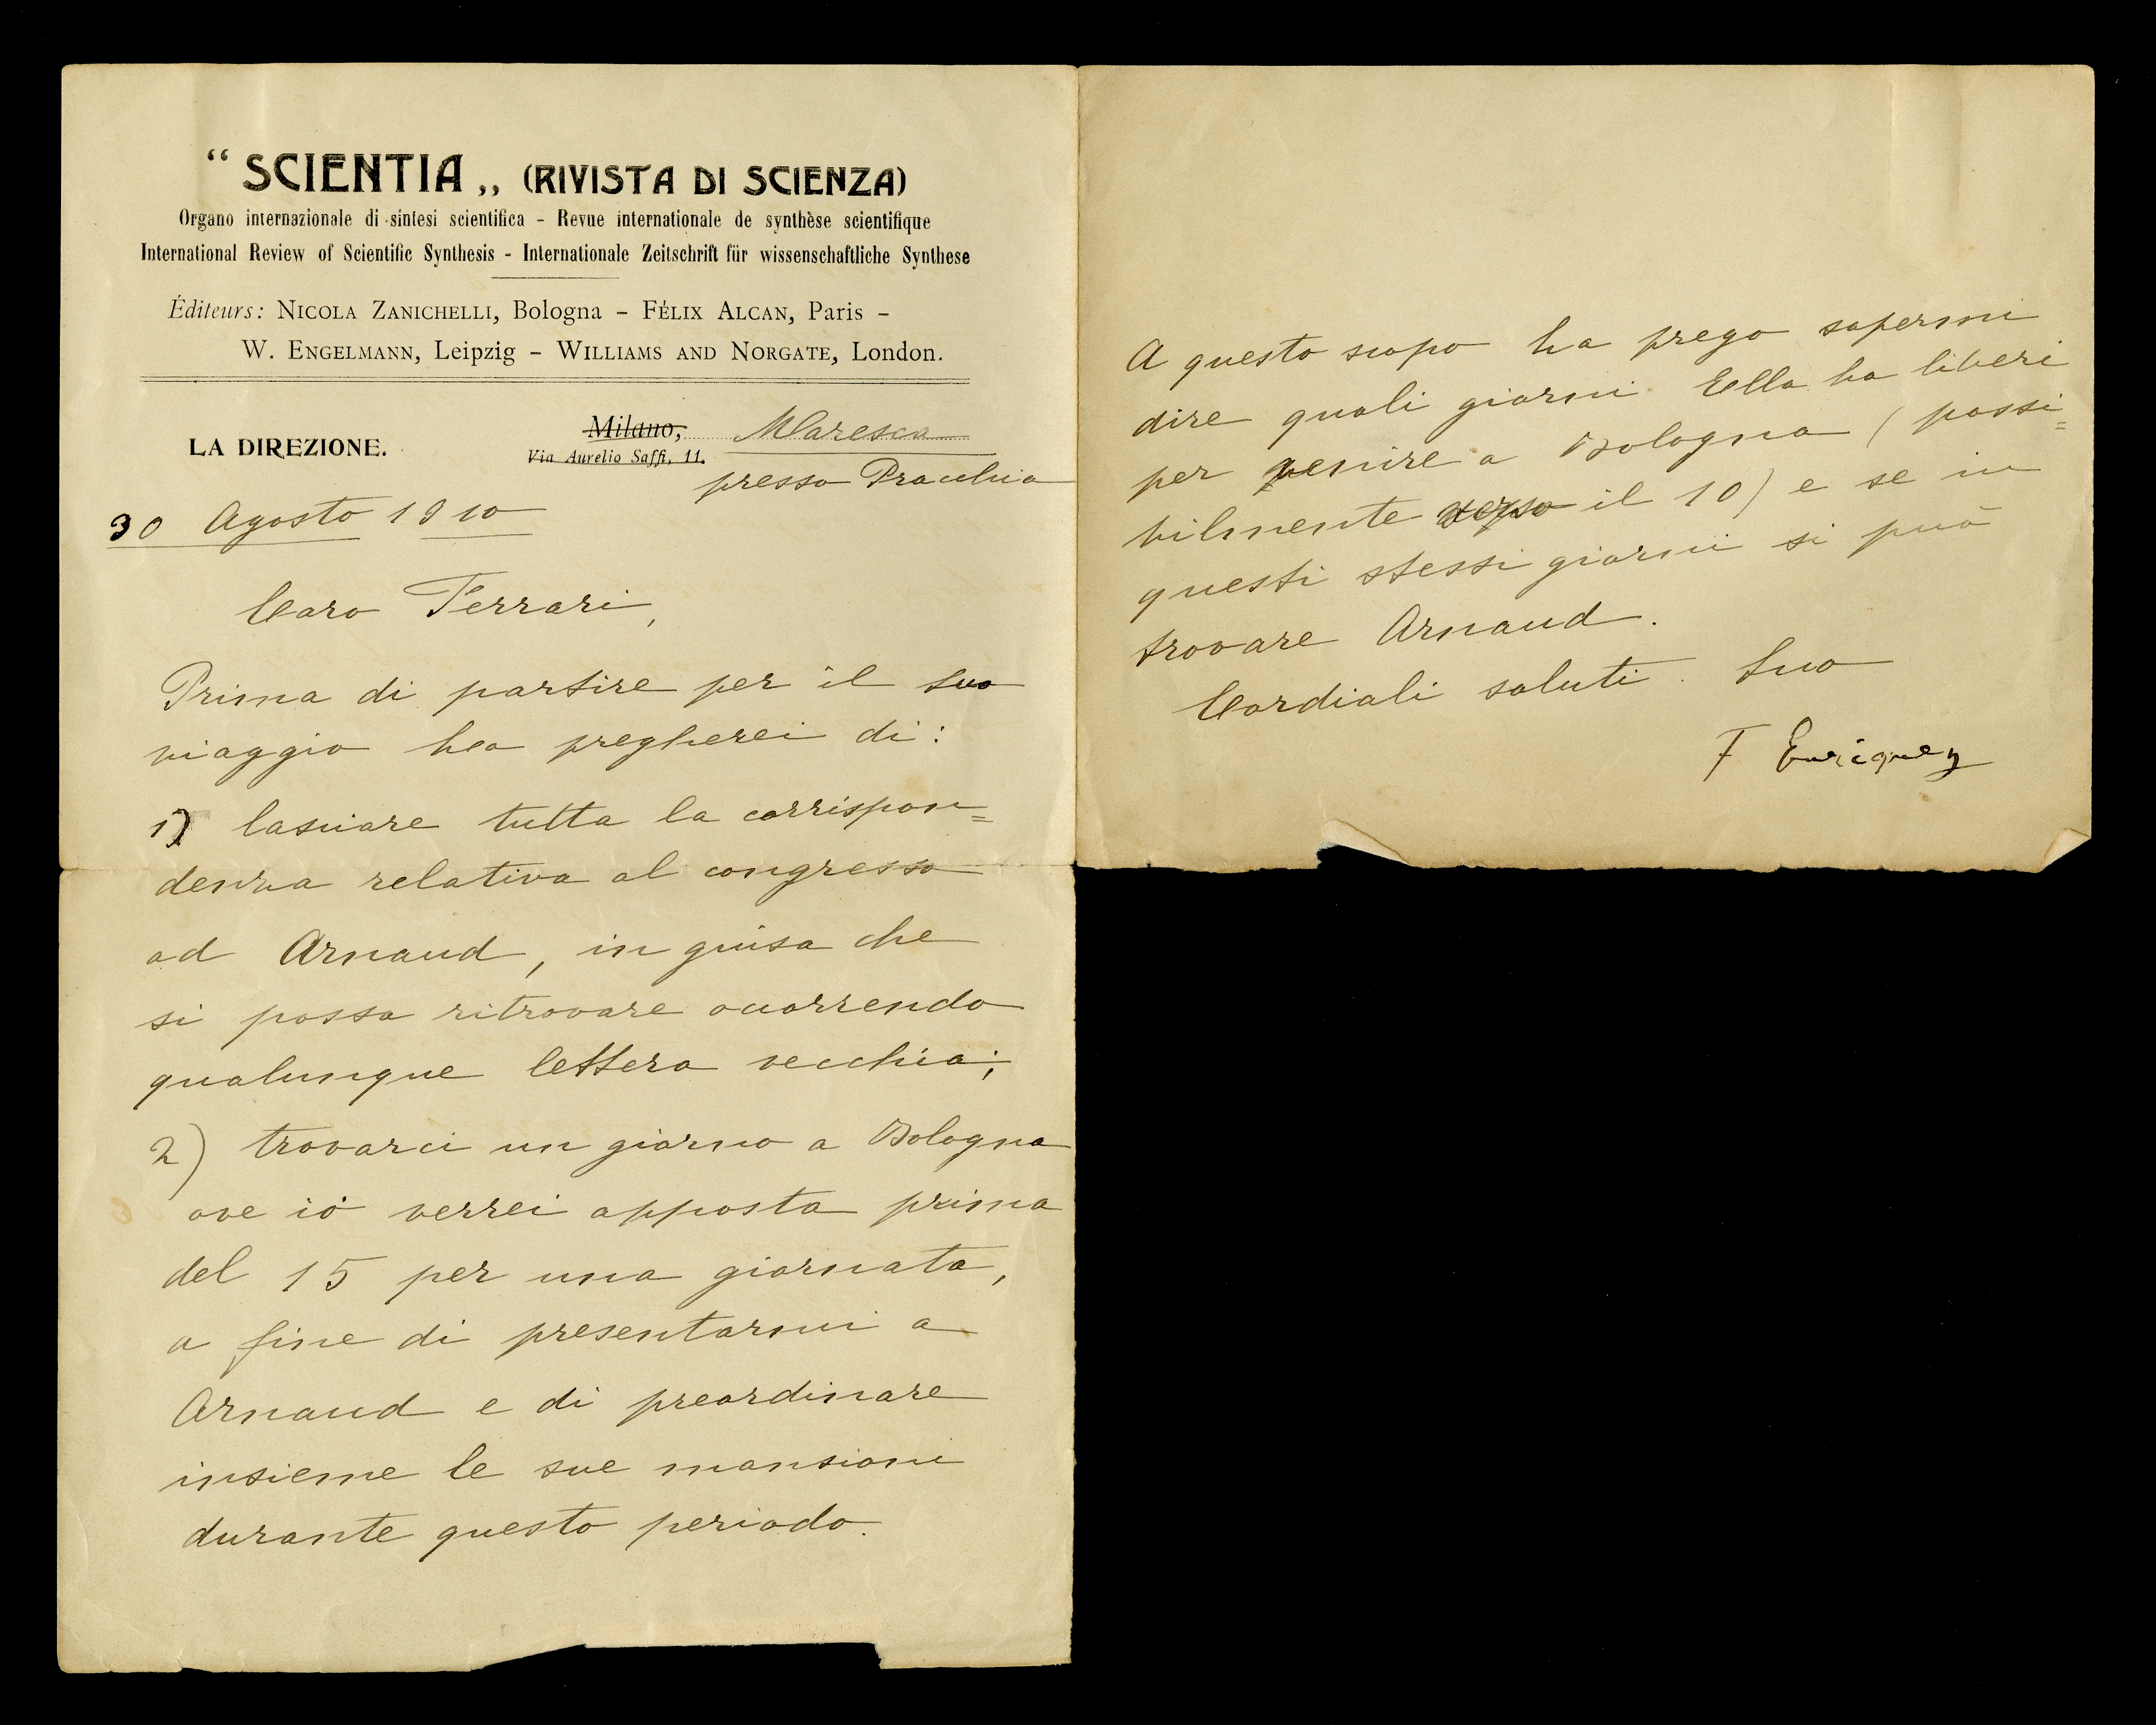 “ SCIENTIA „ (RIVISTA DI SCIENZA)
Organo internazionale di sintesi scientifica - Revue internationale de synthèse scientifique
International Review of Scientific Synthesis - Internationale Zeitschrift für wissenschaftliche Synthese
Éditeurs: NICOLA ZANICHELLI, Bologna – FÉLIX ALCAN, Paris –
W. ENGELMANN, Leipzig – WILLIAMS AND NORGATE, London.
LA DIREZIONE.
Milano, Maresca
Via Aurelio Saffi, 11.
presso Pracchia
30 Agosto 1910
Caro Ferrari,
Prima di partire per il Suo
viaggio La pregherei di:
1) lasciare tutta la corrispon=
denza relativa al congresso
ad Arnaud, in guisa che
si possa ritrovare occorrendo
qualunque lettera vecchia;
2) trovarci un giorno a Bologna
ove io verrei apposta prima
del 15 per una giornata,
a fine di presentarmi a
Arnaud e di preordinare
insieme le sue mansioni
durante questo periodo.
A questo scopo La prego sapermi
dire quali giorni Ella ha liberi
per venire a Bologna (possi=
bilmente verso il 10) e se in
questi stessi giorni si può
trovare Arnaud.
Cordiali saluti. Suo
F Enriques